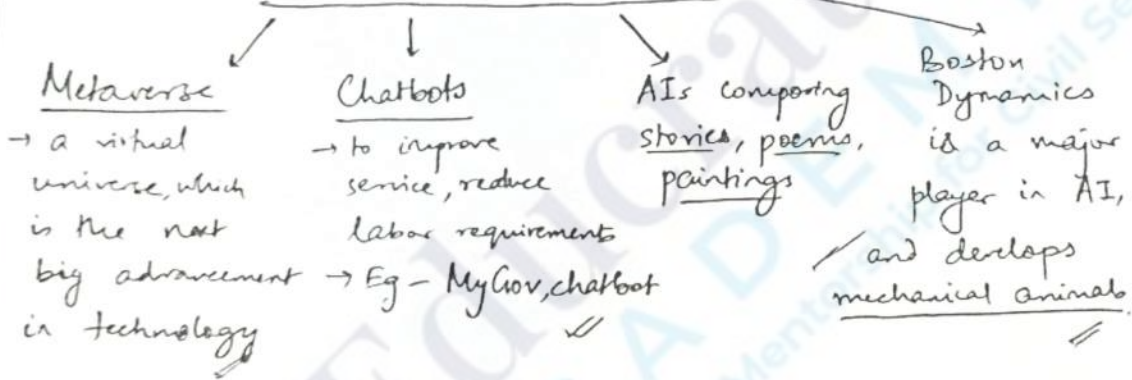 Metaverse
→ a virtual
universe, which
is the next
big advancement
in technology
Chatbots
→ to improve
service, reduce
labor requirements
→ Eg - MyGov, chatbot
AIs composing
stories, poems,
paintings
Boston
Dynamics
is a major
player in AI,
and develops
mechanical animals
Educra
ADEM
Mentorship for Civil Se